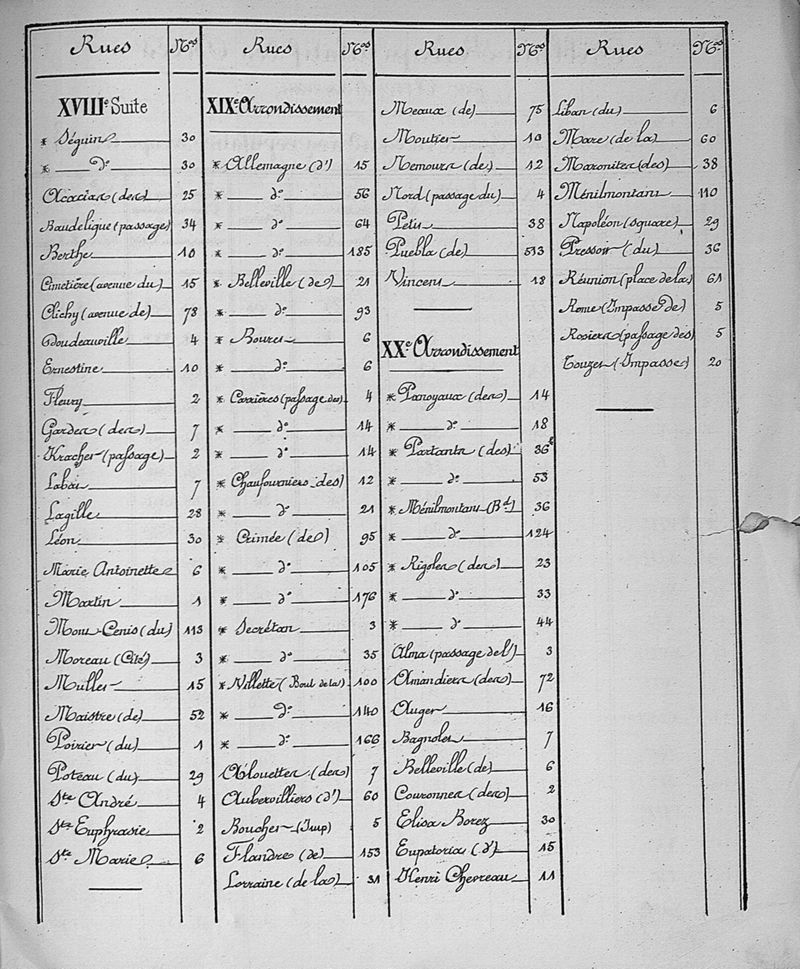 Rues Nos
XVIIIe Suite
* Séguin 30
* do 30
Acacias (des) 25
Baudelique (passage) 34
Berthe 10
Cimetière (avenue du) 15
Clichy (avenue de) 78
Doudeauville 4
Ernestine 10
Fleury 2
Gardes (des) 7
Kracher (passage) 2
Labat 7
Lagille 28
Léon 30
Marie Antoinette 6
Martin 1
Mont-Cenis (du) 113
Moreau (Cité) 3
Muller 15
Maistre (de) 52
Poirier (du) 1
Poteau (du) 29
Ste André 4
Ste Euphrasie 2
Ste Marie 6
Rues Nos
XIXe Arrondissement
* Allemagne (d') 15
* do 56
* do 64
* do 185
* Belleville (de) 21
* do 93
* Bouret 6
* do 6
* Carrières (passage des) 4
* do 14
* do 14
* Chaufourniers des) 12
* do 21
* Crimée (de) 95
* do 105
* do 176
* Secrétan 3
* do 35
* Villette (Boul de la) 100
* do 140
* do 166
Alouettes (des) 7
Aubervilliers (d') 60
Boucher (Imp) 5
Flandre (de) 153
Lorraine (de la) 31
Rues Nos
Meaux (de) 75
Moutier 10
Nemours (de) 12
Nord (passage du) 4
Petit 38
Puebla (de) 513
Vincent 18
XXe Arrondissement
* Panoyaux (des) 14
* do 18
* Partants (des) 36
* do 53
* Ménilmontant (Bd) 36
* do 124
* Rigoles (des) 23
* do 33
* do 44
Alma (passage de l') 3
Amandiers (des) 72
Auger 16
Bagnolet 7
Belleville (de) 6
Couronnes (des) 2
Elisa Borez 30
Eupatoria (d') 15
Henri Chevreau 11
Rues Nos
Liban (du) 6
Mare (de la) 60
Maronites (des) 38
Ménilmontant 110
Napoléon (square) 29
Pressoir (du) 36
Réunion (place de la) 61
Rome (Impasse de) 5
Rosiers (passage des) 5
Touzet (Impasse) 20